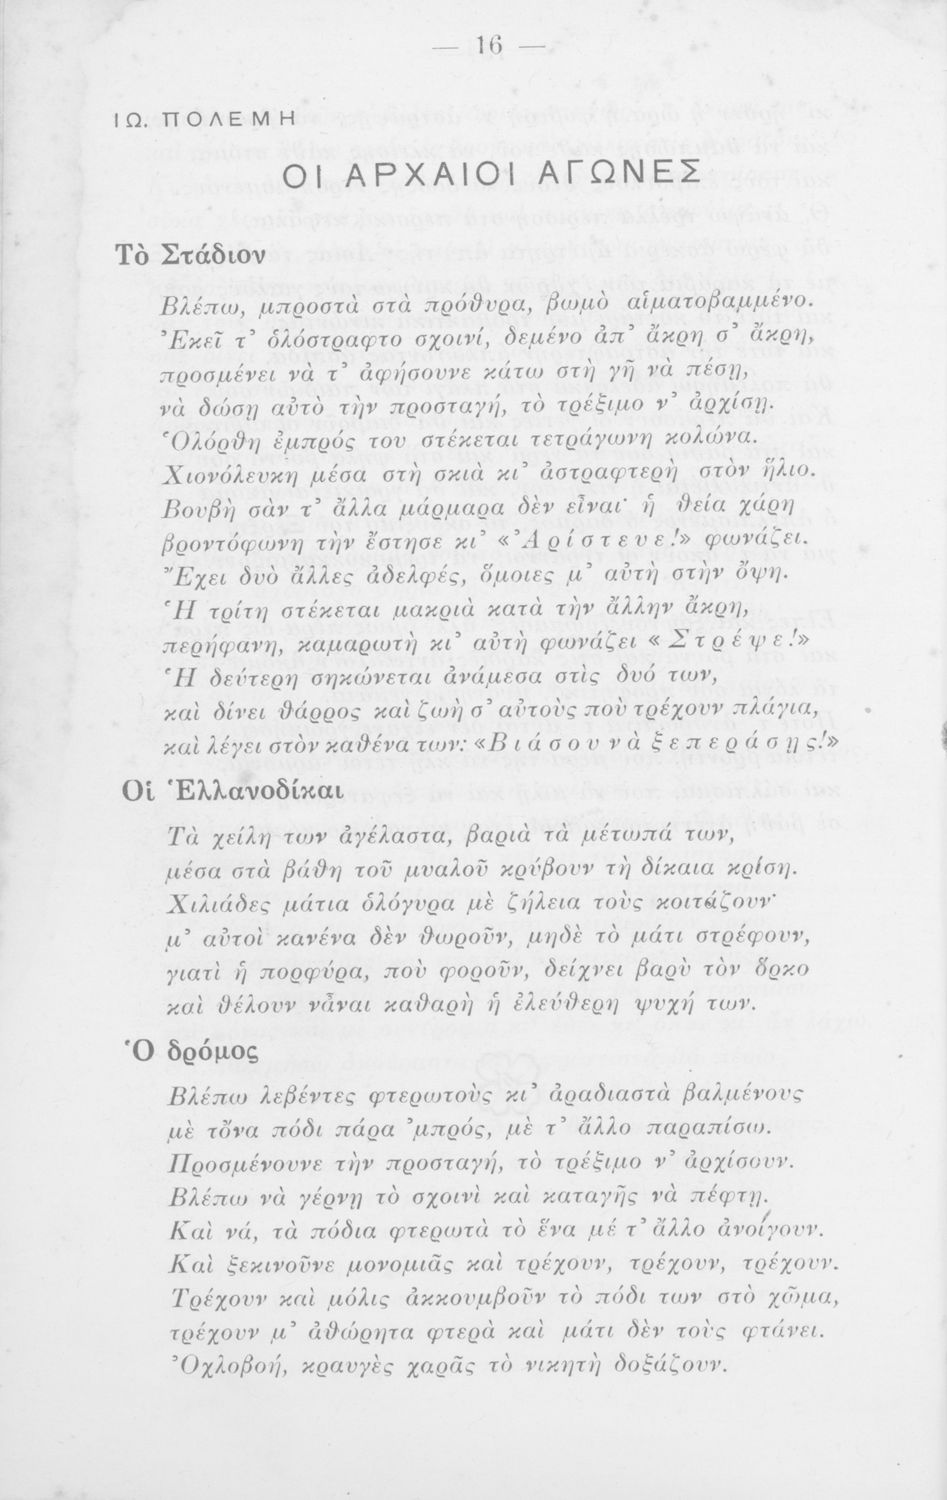 — 16 —
ΙΩ. ΠΟΛΕΜΗ
ΟΙ ΑΡΧΑΙΟΙ ΑΓΩΝΕΣ
Τὸ Στάδιον
Βλέπω, μπροστὰ στὰ πρόθυρα, βωμὸ αἱματοβαμμένο.
Ἐκεῖ τ’ ὁλόστραφτο σχοινί, δεμένο ἀπ’ ἄκρη σ’ ἄκρη,
προσμένει νὰ τ’ ἀφήσουνε κάτω στὴ γῆ νὰ πέσῃ,
νὰ δώσῃ αὐτὸ τὴν προσταγή, τὸ τρέξιμο ν’ ἀρχίσῃ.
Ὁλόρθη ἐμπρός του στέκεται τετράγωνη κολώνα.
Χιονόλευκη μέσα στὴ σκιὰ κι’ ἀστραφτερὴ στὸν ἥλιο.
Βουβὴ σὰν τ’ ἄλλα μάρμαρα δὲν εἶναι· ἡ θεία χάρη
βροντόφωνη τὴν ἔστησε κι’ «Ἀρίστευε!» φωνάζει.
Ἔχει δυὸ ἄλλες ἀδελφές, ὅμοιες μ’ αὐτὴ στὴν ὄψη.
Ἡ τρίτη στέκεται μακριὰ κατὰ τὴν ἄλλην ἄκρη,
περήφανη, καμαρωτὴ κι’ αὐτὴ φωνάζει «Στρέψε!»
Ἡ δεύτερη σηκώνεται ἀνάμεσα στὶς δυό των,
καὶ δίνει θάρρος καὶ ζωὴ σ’ αὐτοὺς ποὺ τρέχουν πλάγια,
καὶ λέγει στὸν καθένα των: «Βιάσου νὰ ξεπεράσῃς!»
Οἱ Ἑλλανοδίκαι
Τὰ χείλη των ἀγέλαστα, βαριὰ τὰ μέτωπά των,
μέσα στὰ βάθη τοῦ μυαλοῦ κρύβουν τὴ δίκαια κρίση.
Χιλιάδες μάτια ὁλόγυρα μὲ ζήλεια τοὺς κοιτάζουν·
μ’ αὐτοὶ κανένα δὲν θωροῦν, μηδὲ τὸ μάτι στρέφουν,
γιατὶ ἡ πορφύρα, ποὺ φοροῦν, δείχνει βαρὺ τὸν ὅρκο
καὶ θέλουν νἆναι καθαρὴ ἡ ἐλεύθερη ψυχή των.
Ὁ δρόμος
Βλέπω λεβέντες φτερωτοὺς κι’ ἀραδιαστὰ βαλμένους
μὲ τὄνα πόδι πάρα ’μπρός, μὲ τ’ ἄλλο παραπίσω.
Προσμένουνε τὴν προσταγή, τὸ τρέξιμο ν’ ἀρχίσουν.
Βλέπω νὰ γέρνῃ τὸ σχοινὶ καὶ καταγῆς νὰ πέφτῃ.
Καὶ νά, τὰ πόδια φτερωτὰ τὸ ἕνα μέ τ’ ἄλλο ἀνοίγουν.
Καὶ ξεκινοῦνε μονομιᾶς καὶ τρέχουν, τρέχουν, τρέχουν.
Τρέχουν καὶ μόλις ἀκκουμβοῦν τὸ πόδι των στὸ χῶμα,
τρέχουν μ’ ἀθώρητα φτερὰ καὶ μάτι δὲν τοὺς φτάνει.
Ὀχλοβοή, κραυγὲς χαρᾶς τὸ νικητὴ δοξάζουν.